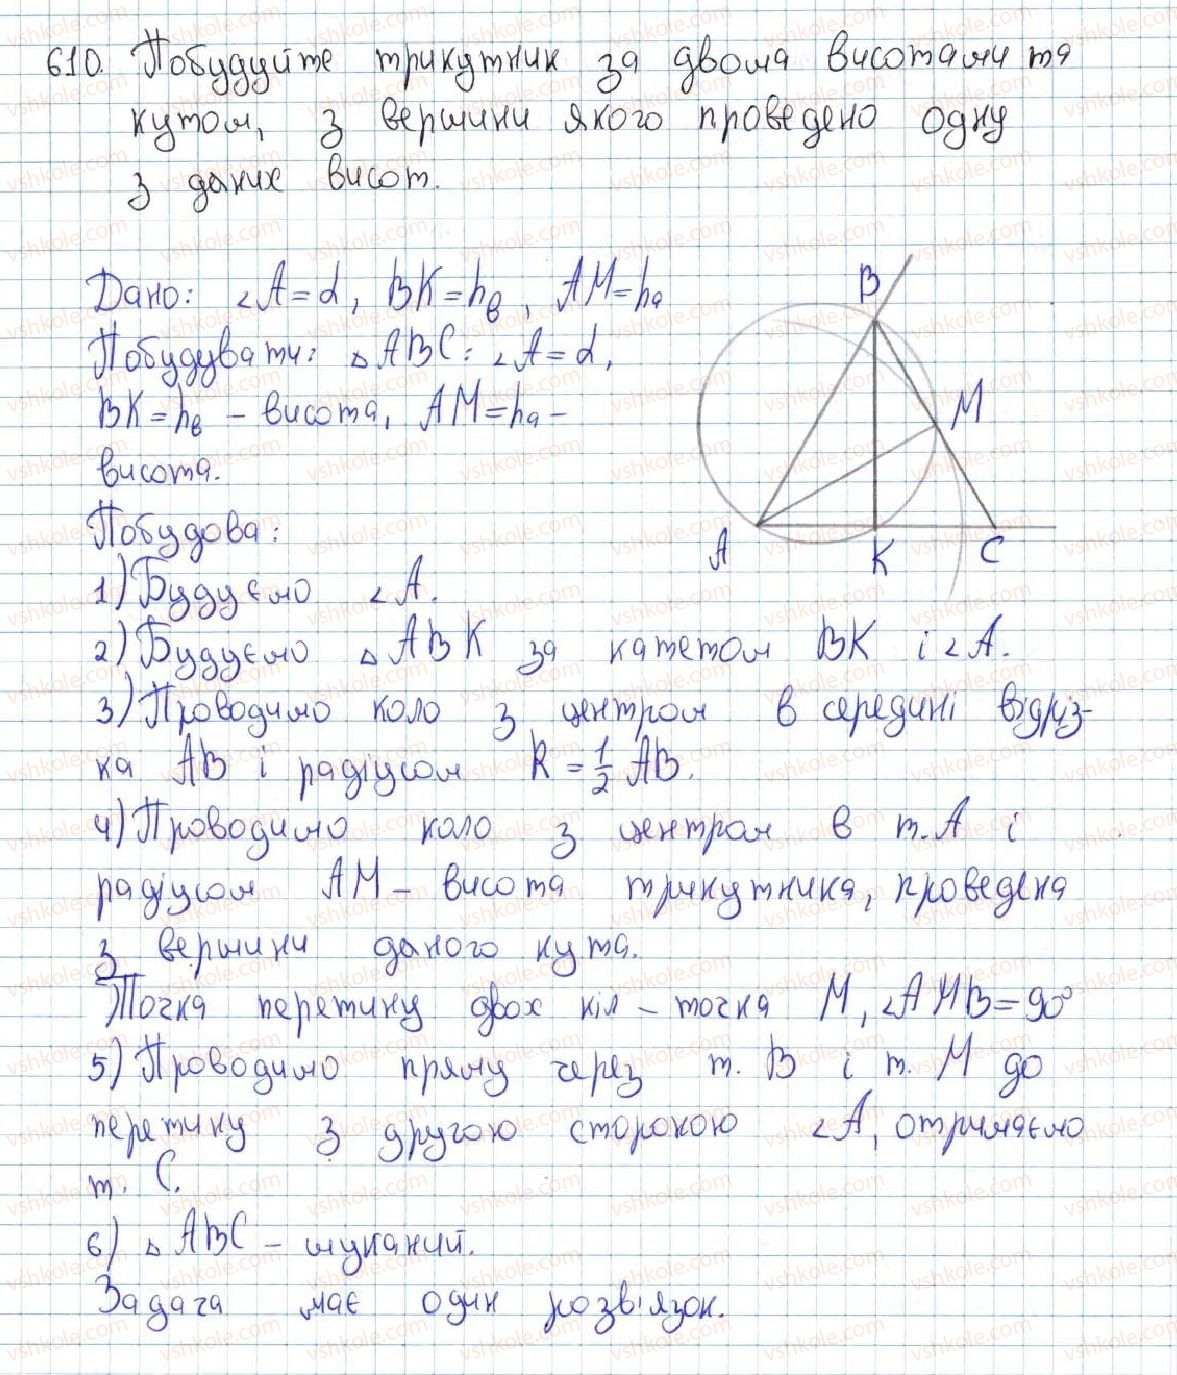 610. Побудуйте трикутник за двома висотами та
кутом, з вершини якого проведено одну
з даних висот.
Дано: ∠A=α, BK=hв, AM=hа
Побудувати: △ABC: ∠A=α,
BK=hв – висота, AM=hа –
висота.
B
M
A
K
C
Побудова:
1) Будуємо ∠A.
2) Будуємо △ABK за катетом BK і ∠A.
3) Проводимо коло з центром в середині відріз-
ка AB і радіусом R = 1/2 AB.
4) Проводимо коло з центром в т. A і
радіусом AM – висота трикутника, проведена
з вершини даного кута.
Точка перетину двох кіл – точка M, ∠AMB=90°
5) Проводимо пряму через т. B і т. M до
перетину з другою стороною ∠A, отримаємо
т. C.
6) △ABC – шуканий.
Задача має один розв'язок.
vshkole.com